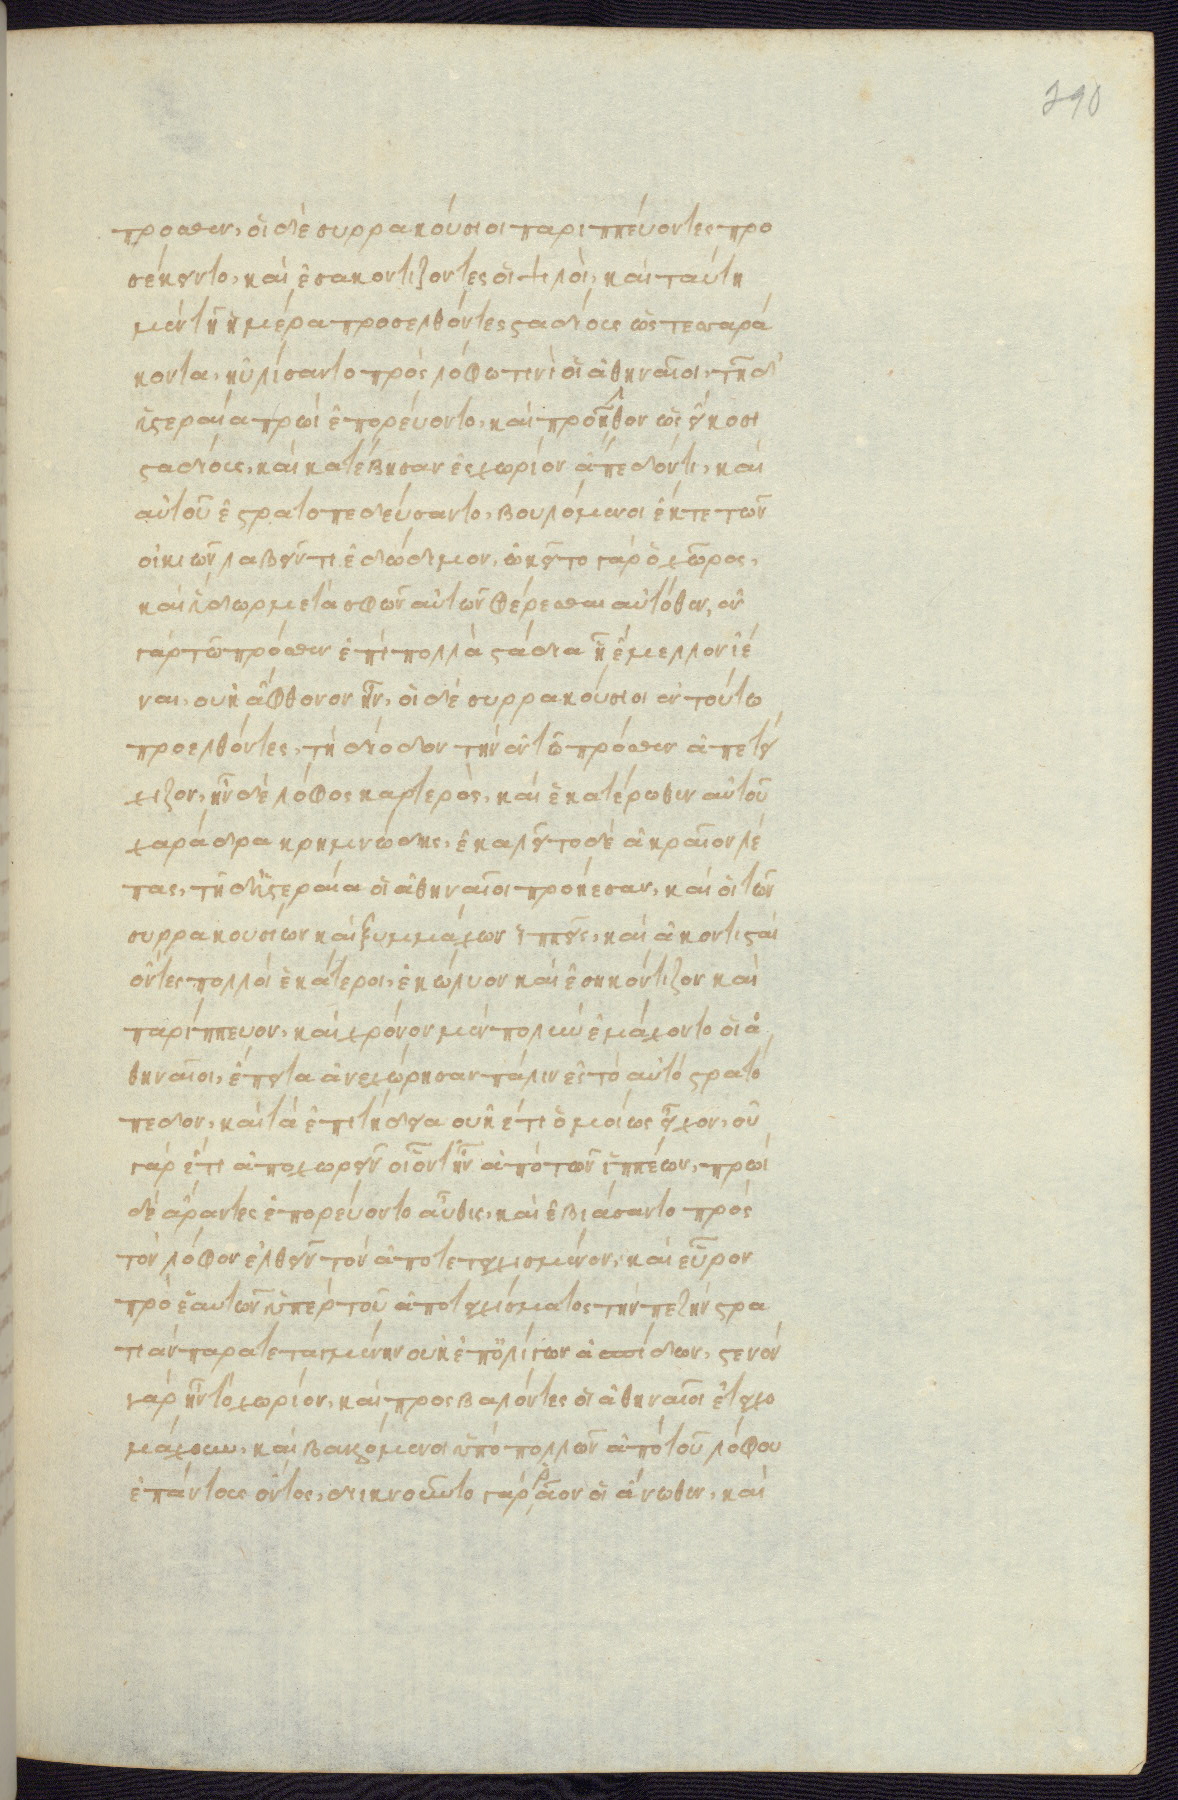 390
πρόσθεν, οἱ δὲ συρρακούσιοι παριππεύοντες προ
σέκειντο, καὶ ἐσακοντίζοντες οἱ ψιλοὶ, καὶ ταύτη
μὲν τῆ ἡμέρα προσελθόντες σταδίους ὡς τεσσαρά
κοντα, ηὐλίσαντο πρὸς λόφω τινὶ οἱ ἀθηναῖοι, τῆ δ'
ὑστεραία πρωὶ ἐπορεύοντο, καὶ προῆλθον ὡς εἴκοσι
σταδίους, καὶ κατέβησαν ἐς χωρίον ἄπεδόν τι, καὶ
αὐτοῦ ἐστρατοπεδεύσαντο, βουλόμενοι ἔκ τε τῶν
οἰκιῶν λαβεῖν τι ἐδώδιμον, ὠκεῖτο γὰρ ὁ χῶρος,
καὶ ὕδωρ μετὰ σφῶν αὐτῶν φέρεσθαι αὐτόθεν, ἐν
γὰρ τῶ πρόσθεν ἐπὶ πολλὰ στάδια ἧ ἔμελλον ἰέ
ναι, οὐκ ἄφθονον ἦν, οἱ δὲ συρρακούσιοι ἐν τούτω
προελθόντες, τὴν δίοδον τὴν ἐν τῶ πρόσθεν ἀπετεί
χιζον, ἦν δὲ λόφος καρτερὸς, καὶ ἑκατέρωθεν αὐτοῦ
χαράδρα κρημνώδης, ἐκαλεῖτο δὲ ἀκραῖον λέ
πας, τῆ δ' ὑστεραία οἱ ἀθηναῖοι προήεσαν, καὶ οἱ τῶν
συρρακουσίων καὶ ξυμμάχων ἱππεῖς, καὶ ἀκοντισταὶ
ὄντες πολλοὶ ἑκάτεροι, ἐκώλυον καὶ ἐσηκόντιζον καὶ
παρίππευον, καὶ χρόνον μὲν πολὺν ἐμάχοντο οἱ ἀ
θηναῖοι, ἔπειτα ἀνεχώρησαν πάλιν ἐς τὸ αὐτὸ στρατό
πεδον, καὶ τὰ ἐπιτήδεια οὐκ έτι ὁμοίως εἶχον, οὐ
γὰρ ἔτι ἀποχωρεῖν οἷόντ' ἦν ἀπὸ τῶν ἱππέων, πρωὶ
δὲ ἄραντες ἐπορεύοντο αὖθις, καὶ ἐβιάσαντο πρὸς
τὸν λόφον ἐλθεῖν τὸν ἀποτετειχισμένον, καὶ εὗρον
πρὸ ἑαυτῶν ὑπὲρ τοῦ ἀποτειχίσματος τὴν πεζὴν στρα
τιὰν παρατεταγμένην οὐκ ἐπ' ὀλίγων ἀσπίδων, στενὸν
γὰρ ἦν τὸ χωρίον, καὶ προσβαλόντες οἱ ἀθηναῖοι ἐτειχο
μάχουν, καὶ βαλλόμενοι ὑπὸ πολλῶν ἀπὸ τοῦ λόφου
ἐπάντους ὄντος, διικνοῦντο γὰρ ῥᾶον οἱ ἄνωθεν, καὶ